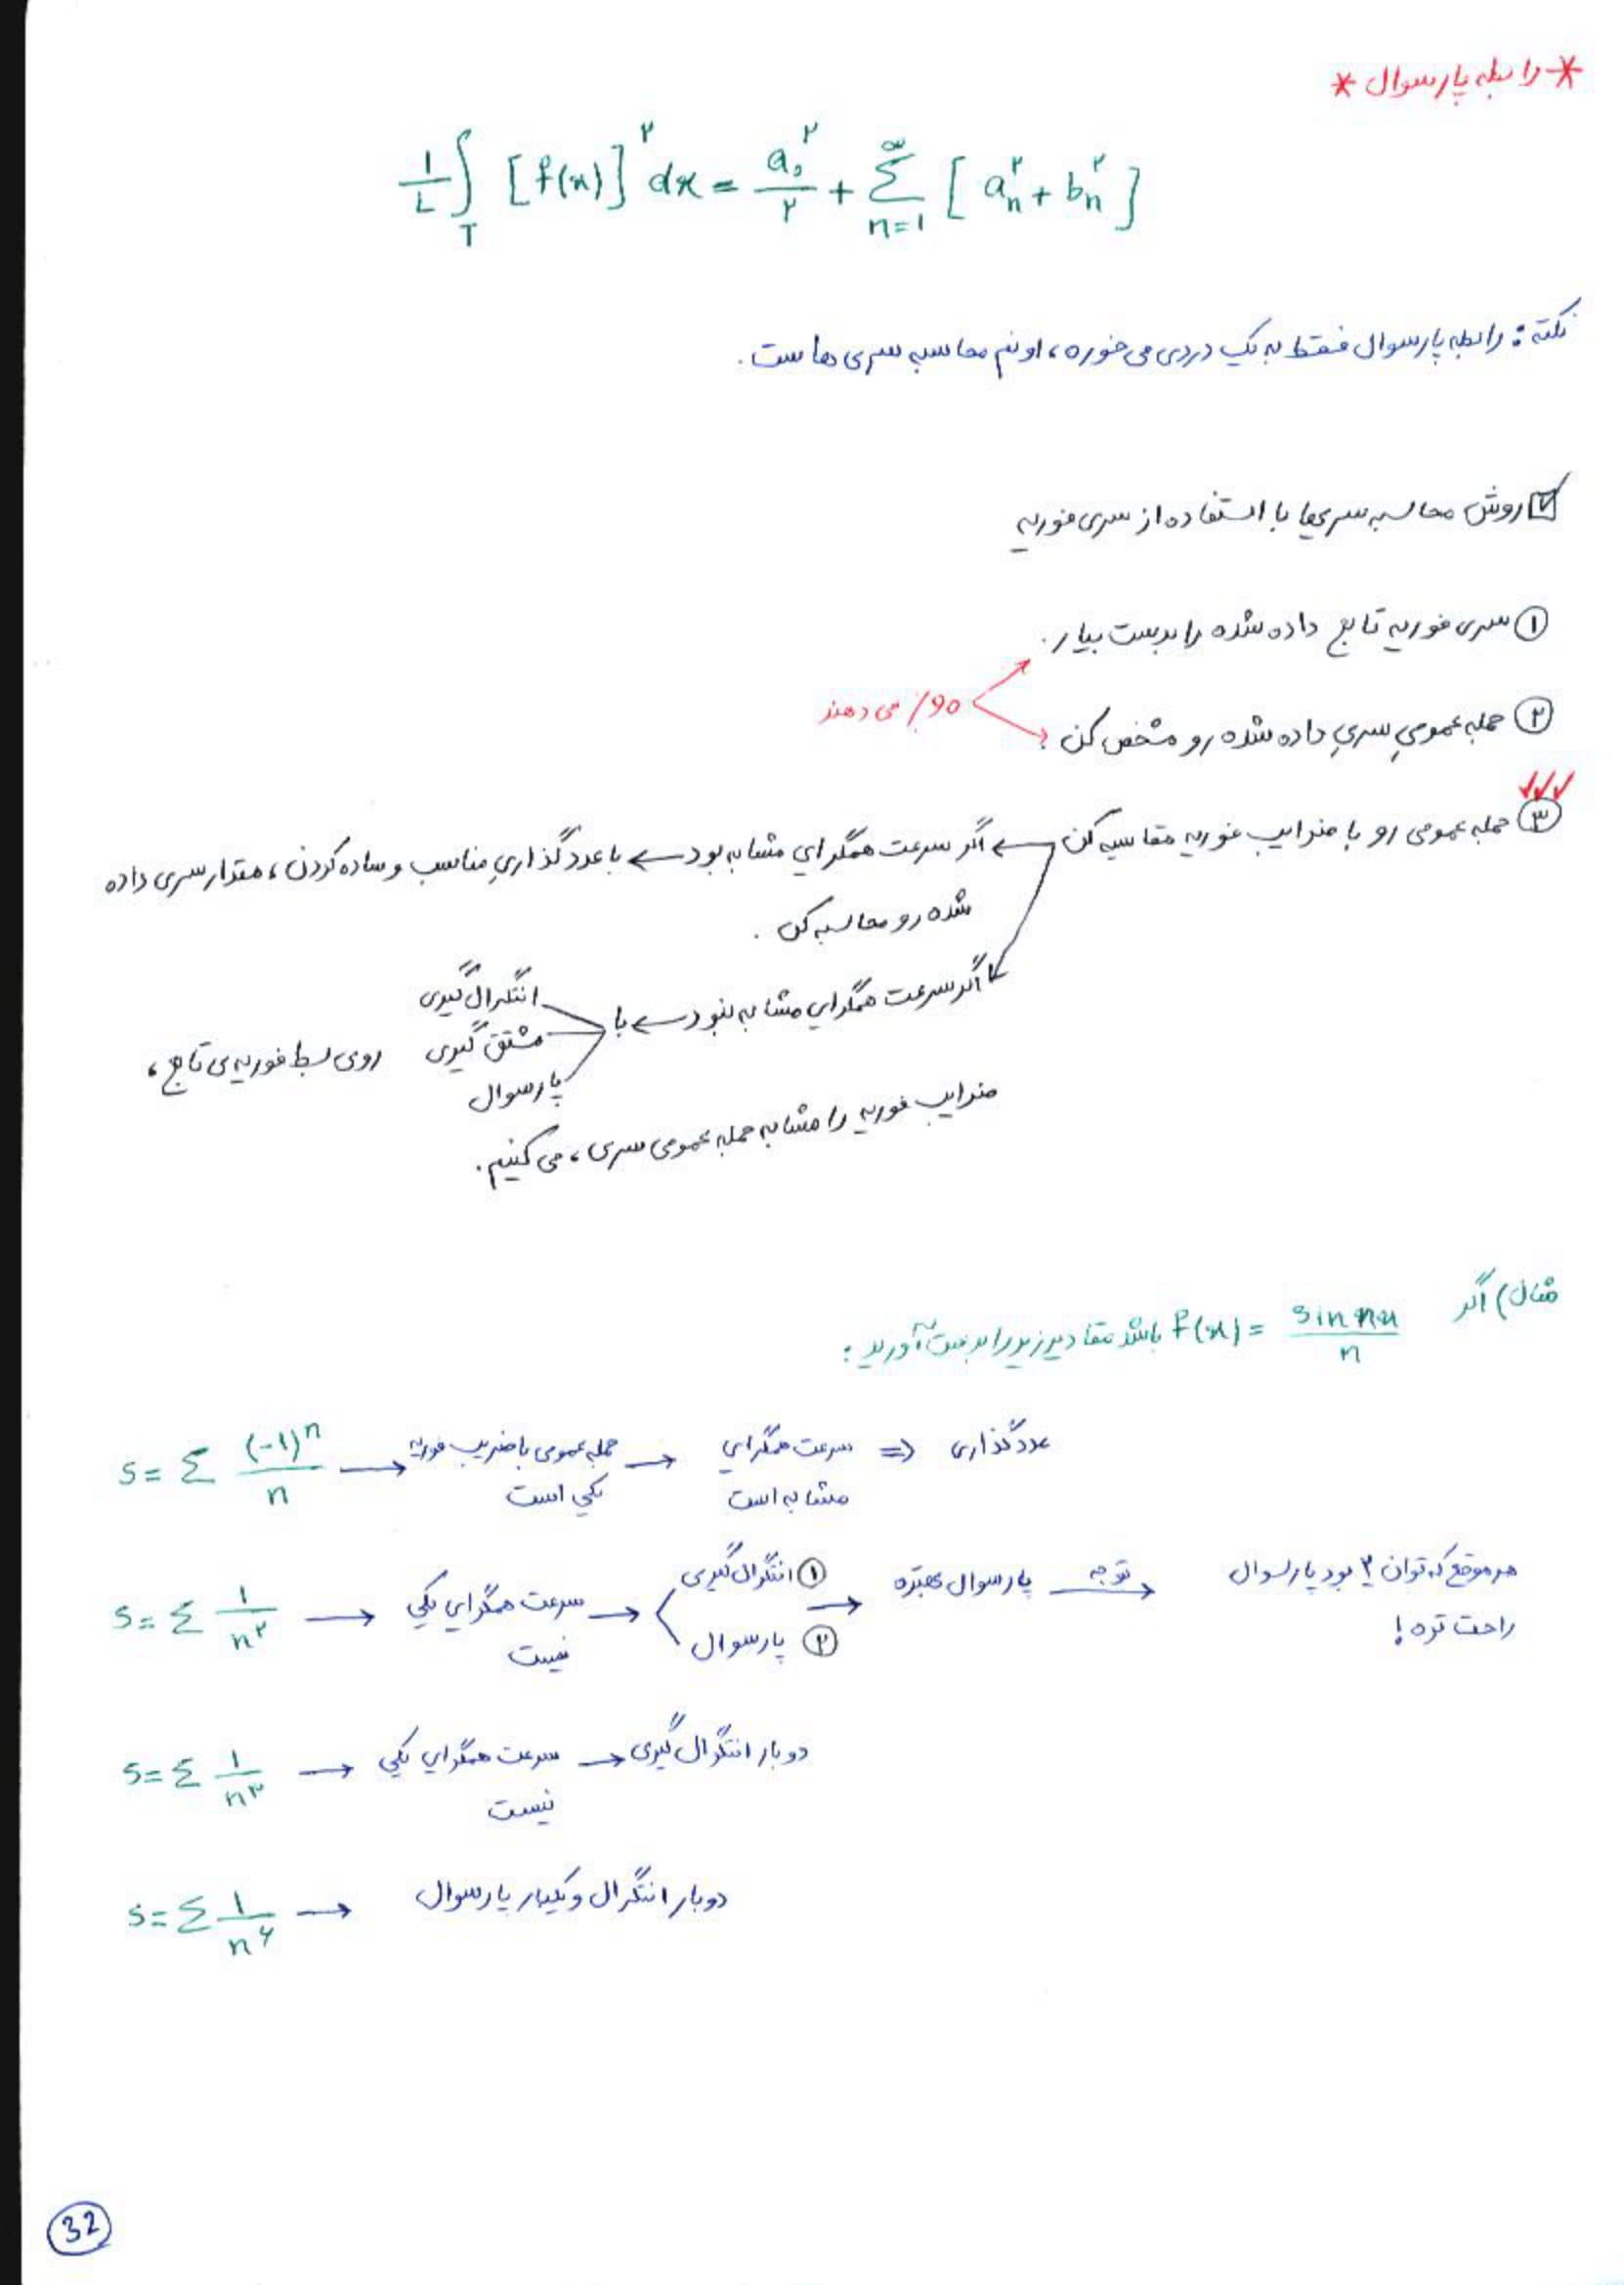 * رابطه پارسوال *
1/L ∫_T [f(x)]^۲ dx = a₀^۲/۲ + Σ_{n=1}^{∞} [a_n^۲ + b_n^۲]
نکته: رابطه پارسوال فقط به یک دردی می‌خوره، اونم محاسبه سری هاست.
☑ روش محاسبه سری‌ها با استفاده از سری فوریه
① سری فوریه تابع داده شده را بدست بیار.
90٪ می دهند
② جمله عمومیِ سریِ داده شده رو مشخص کن.
✓✓✓
③ جمله عمومی رو با ضرایب فوریه مقایسه کن ← اگر سرعت همگرایی مشابه بود ← با عددگذاریِ مناسب و ساده کردن، مقدار سری داده
شده رو محاسبه کن.
اگر سرعت همگرایی مشابه نبود ← با
انتگرال گیری
مشتق گیری
پارسوال
روی بسط فوریه‌ی تابع،
ضرایب فوریه را مشابه جمله عمومی سری، می کنیم.
مثال) اگر f(x) = sin nx / n باشد مقادیر زیر را بدست آورید:
S = Σ (-1)^n / n → جمله عمومی با ضریب فوریه یکی است → سرعت همگرایی مشابه است ⇒ عددگذاری
S = Σ 1/n^۲ → سرعت همگرایی یکی نیست → ① انتگرال گیری ② پارسوال → پارسوال بهتره → توجه هر موقع که توان ۲ بود پارسوال
راحت تره!
S = Σ 1/n^۳ → سرعت همگرایی یکی نیست → دوبار انتگرال گیری
S = Σ 1/n^۶ → دوبار انتگرال و یکبار پارسوال
32